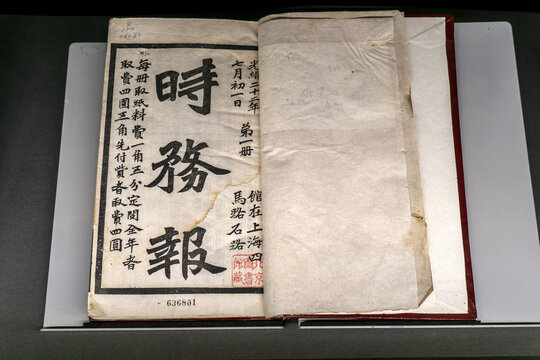 光緒二十二年
七月初一日
第一册
館在上海四
馬路石路
時務報
每册取紙料費一角五分定閱全年者
取費四圓五角先付貲者取費四圓
北京
圖書
館藏
636801